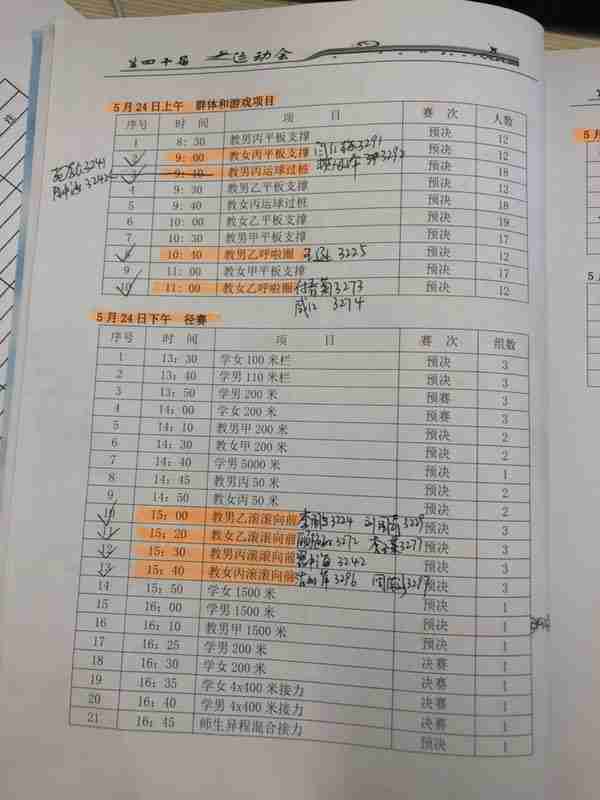 第四十届 运动会
5月24日上午 群体和游戏项目
序号 时 间 项 目 赛 次 人数
1 8:30 教男丙平板支撑 预决 12
2 9:00 教女丙平板支撑 3291 预决 12
3 9:10 教男丙运球过桩 3292 预决 18
3241
3242
4 9:30 教男乙平板支撑 预决 12
5 9:40 教女丙运球过桩 预决 18
6 10:00 教女乙平板支撑 预决 19
7 10:30 教男甲平板支撑 预决 17
8 10:40 教男乙呼啦圈 3225 预决 12
9 11:00 教女甲平板支撑 预决 17
10 11:00 教女乙呼啦圈 3273 预决 12
3274
5月24日下午 径赛
序号 时 间 项 目 赛 次 组数
1 13:30 学女100米栏 预决 3
2 13:40 学男110米栏 预决 3
3 13:50 学男200米 预赛 3
4 14:00 学女200米 预赛 3
5 14:10 教男甲200米 预决 2
6 14:30 教女甲200米 预决 2
7 14:40 学男5000米 预决 1
8 14:45 教男丙50米 预决 2
9 14:50 教女丙50米 预决 2
10 15:00 教男乙滚滚向前 3224 3229 预决 3
11 15:20 教女乙滚滚向前 3272 3277 预决 3
12 15:30 教男丙滚滚向前 3242 预决 3
13 15:40 教女丙滚滚向前 3296 3297 预决 3
14 15:50 学女1500米 预决 1
15 16:00 学男1500米 预决 1
16 16:10 教男甲1500米 预决 1
17 16:25 学男200米 决赛 1
18 16:30 学女200米 决赛 1
19 16:35 学女4x400米接力 预决 1
20 16:40 学男4x400米接力 预决 1
21 16:45 师生异程混合接力 预决 1